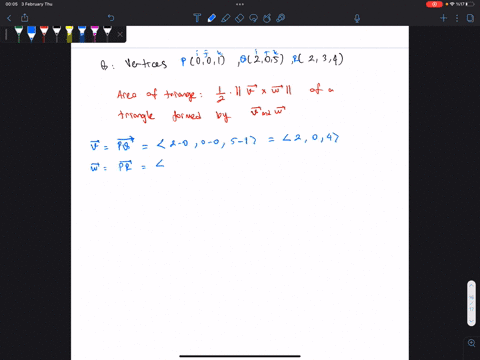 00:05 3 February Thu
%17
i j k i j k
Q: Vertices P(0,0,1) , Q(2,0,5) R(2,3,4)
Area of triangle: 1/2 · ||v⃗ × w⃗|| of a
triangle formed by v⃗ and w⃗
v⃗ = PQ⃗ = < 2-0 , 0-0 , 5-1 > = < 2, 0, 4 >
w⃗ = PR⃗ = <